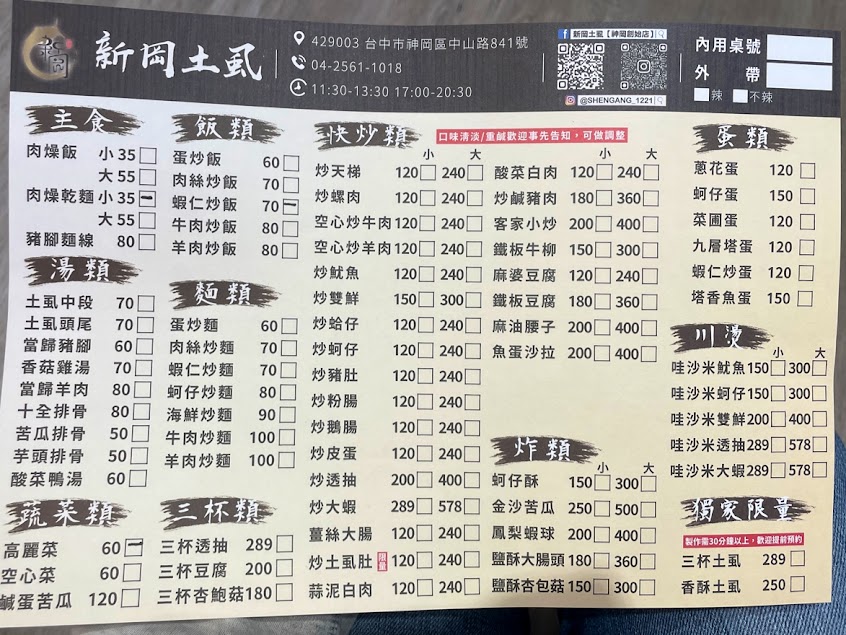 新岡土虱
429003 台中市神岡區中山路841號
04-2561-1018
11:30-13:30 17:00-20:30
新岡土虱【神岡創始店】
@SHENGANG_1221
內用桌號
外 帶
辣 不辣
主食
肉燥飯 小35
大55
肉燥乾麵 小35
大55
豬腳麵線 80
湯類
土虱中段 70
土虱頭尾 70
當歸豬腳 60
香菇雞湯 70
當歸羊肉 80
十全排骨 80
苦瓜排骨 50
芋頭排骨 50
酸菜鴨湯 60
蔬菜類
高麗菜 60
空心菜 60
鹹蛋苦瓜 120
飯類
蛋炒飯 60
肉絲炒飯 70
蝦仁炒飯 70
牛肉炒飯 80
羊肉炒飯 80
麵類
蛋炒麵 60
肉絲炒麵 70
蝦仁炒麵 70
蚵仔炒麵 80
海鮮炒麵 90
牛肉炒麵 100
羊肉炒麵 100
三杯類
三杯透抽 289
三杯豆腐 200
三杯杏鮑菇 180
快炒類
口味清淡/重鹹歡迎事先告知，可做調整
小 大
炒天梯 120 240
炒螺肉 120 240
空心炒牛肉 120 240
空心炒羊肉 120 240
炒魷魚 120 240
炒雙鮮 150 300
炒蛤仔 120 240
炒蚵仔 120 240
炒豬肚 120 240
炒粉腸 120 240
炒鵝腸 120 240
炒皮蛋 120 240
炒透抽 200 400
炒大蝦 289 578
薑絲大腸 120 240
炒土虱肚 限量 120 240
蒜泥白肉 120 240
小 大
酸菜白肉 120 240
炒鹹豬肉 180 360
客家小炒 200 400
鐵板牛柳 150 300
麻婆豆腐 120 240
鐵板豆腐 180 360
麻油腰子 200 400
魚蛋沙拉 200 400
炸類
小 大
蚵仔酥 150 300
金沙苦瓜 250 500
鳳梨蝦球 200 400
鹽酥大腸頭 180 360
鹽酥杏包菇 150 300
蛋類
蔥花蛋 120
蚵仔蛋 150
菜圃蛋 120
九層塔蛋 120
蝦仁炒蛋 120
塔香魚蛋 150
川燙
小 大
哇沙米魷魚 150 300
哇沙米蚵仔 150 300
哇沙米雙鮮 200 400
哇沙米透抽 289 578
哇沙米大蝦 289 578
獨家限量
製作需30分鐘以上，歡迎提前預約
三杯土虱 289
香酥土虱 250